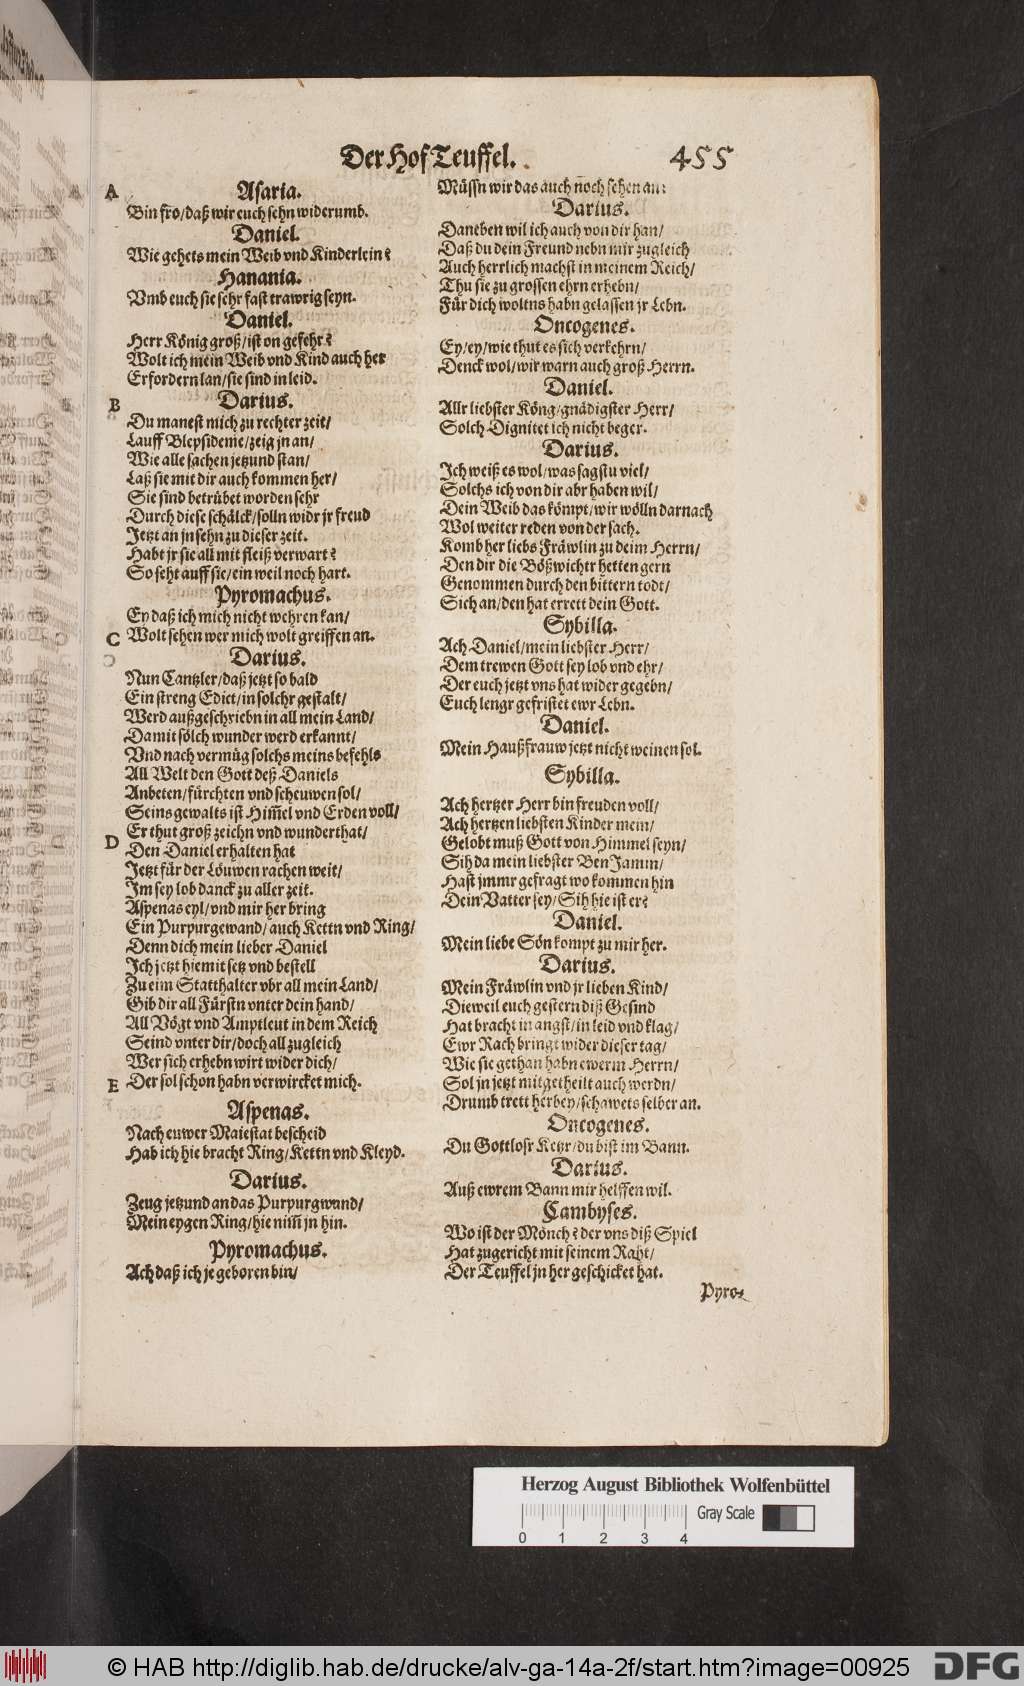 Der Hof Teuffel. 455
A
Asaria.
Bin fro/daß wir euch sehn widerumb.
Daniel.
Wie gehets mein Weib vnd Kinderlein?
Hanania.
Vmb euch sie sehr fast trawrig seyn.
Daniel.
Herr König groß/ist on gefehr?
Wolt ich mein Weib vnd Kind auch her
Erfordern lan/sie sind in leid.
B
Darius.
Du manest mich zu rechter zeit/
Lauff Blepsideme/zeig jn an/
Wie alle sachen jetzund stan/
Laß sie mit dir auch kommen her/
Sie sind betrübet worden sehr
Durch diese schälck/solln widr jr freud
Jetzt an jn sehn zu dieser zeit.
Habt jr sie all mit fleiß verwart?
So seht auff sie/ein weil noch hart.
Pyromachus.
Ey daß ich mich nicht wehren kan/
C
Wolt sehen wer mich wolt greiffen an.
Darius.
Nun Cantzler/daß jetzt so bald
Ein streng Edict/in solchr gestalt/
Werd außgeschriebn in all mein Land/
Damit sölch wunder werd erkannt/
Vnd nach vermüg solchs meins befehls
All Welt den Gott deß Daniels
Anbeten/fürchten vnd scheuwen sol/
Seins gewalts ist Him̃el vnd Erden voll/
Er thut groß zeichn vnd wunderthat/
D
Den Daniel erhalten hat
Jetzt für der Löuwen rachen weit/
Im sey lob danck zu aller zeit.
Aspenas eyl/vnd mir her bring
Ein Purpurgewand/auch Kettn vnd Ring/
Denn dich mein lieber Daniel
Ich jetzt hiemit setz vnd bestell
Zu eim Statthalter vbr all mein Land/
Gib dir all Fürstn vnter dein hand/
All Vögt vnd Amptleut in dem Reich
Seind vnter dir/doch all zugleich
Wer sich erhebn wirt wider dich/
E
Der sol schon habn verwircket mich.
Aspenas.
Nach euwer Maiestat bescheid
Hab ich hie bracht Ring/Kettn vnd Kleyd.
Darius.
Zeug jetzund an das Purpurgwand/
Mein eygen Ring/hie nim̃ jn hin.
Pyromachus.
Ach daß ich je geboren bin/
Müssn wir das auch noch sehen an:
Darius.
Daneben wil ich auch von dir han/
Daß du dein Freund nebn mir zugleich
Auch herrlich machst in meinem Reich/
Thu sie zu grossen ehrn erhebn/
Für dich woltns habn gelassen jr Lebn.
Oncogenes.
Ey/ey/wie thut es sich verkehrn/
Denck wol/wir warn auch groß Herrn.
Daniel.
Allr liebster Köng/gnädigster Herr/
Solch Dignitet ich nicht beger.
Darius.
Ich weiß es wol/was sagstu viel/
Solchs ich von dir abr haben wil/
Dein Weib das kömpt/wir wölln darnach
Wol weiter reden von der sach.
Komb her liebs Fräwlin zu deim Herrn/
Den dir die Bößwichtr hetten gern
Genommen durch den bittern todt/
Sich an/den hat errett dein Gott.
Sybilla.
Ach Daniel/mein liebster Herr/
Dem trewen Gott sey lob vnd ehr/
Der euch jetzt vns hat wider gegebn/
Euch lengr gefristet ewr Lebn.
Daniel.
Mein Haußfrauw jetzt nicht weinen sol.
Sybilla.
Ach hertzer Herr bin freuden voll/
Ach hertzen liebsten Kinder mein/
Gelobt muß Gott von Himmel seyn/
Sih da mein liebster BenJamin/
Hast jmmr gefragt wo kommen hin
Dein Vatter sey/Sih hie ist er?
Daniel.
Mein liebe Sön kompt zu mir her.
Darius.
Mein Fräwlin vnd jr lieben Kind/
Dieweil euch gestern diß Gesind
Hat bracht in angst/in leid vnd klag/
Ewr Rach bringt wider dieser tag/
Wie sie gethan habn ewerm Herrn/
Sol jn jetzt mitgetheilt auch werdn/
Drumb trett herbey/schawets selber an.
Oncogenes.
Du Gottlosr Ketzr/du bist im Bann.
Darius.
Auß ewrem Bann mir helffen wil.
Cambyses.
Wo ist der Mönch? der vns diß Spiel
Hat zugericht mit seinem Raht/
Der Teuffel jn her geschicket hat.
Pyro-
Herzog August Bibliothek Wolfenbüttel
Gray Scale
0 1 2 3 4
© HAB http://diglib.hab.de/drucke/alv-ga-14a-2f/start.htm?image=00925
DFG